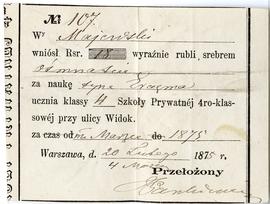 № 107.
W Majewski
wniósł Rsr. 18 wyraźnie rubli, srebrem
ośmnaście
za naukę syna Erazma
ucznia klassy 4 Szkoły Prywatnéj 4ro-klas-
sowéj przy ulicy Widok.
za czas od Marca do 1875
Warszawa, d. 20 Lutego 1875 r.
4 Marca
Przełożony